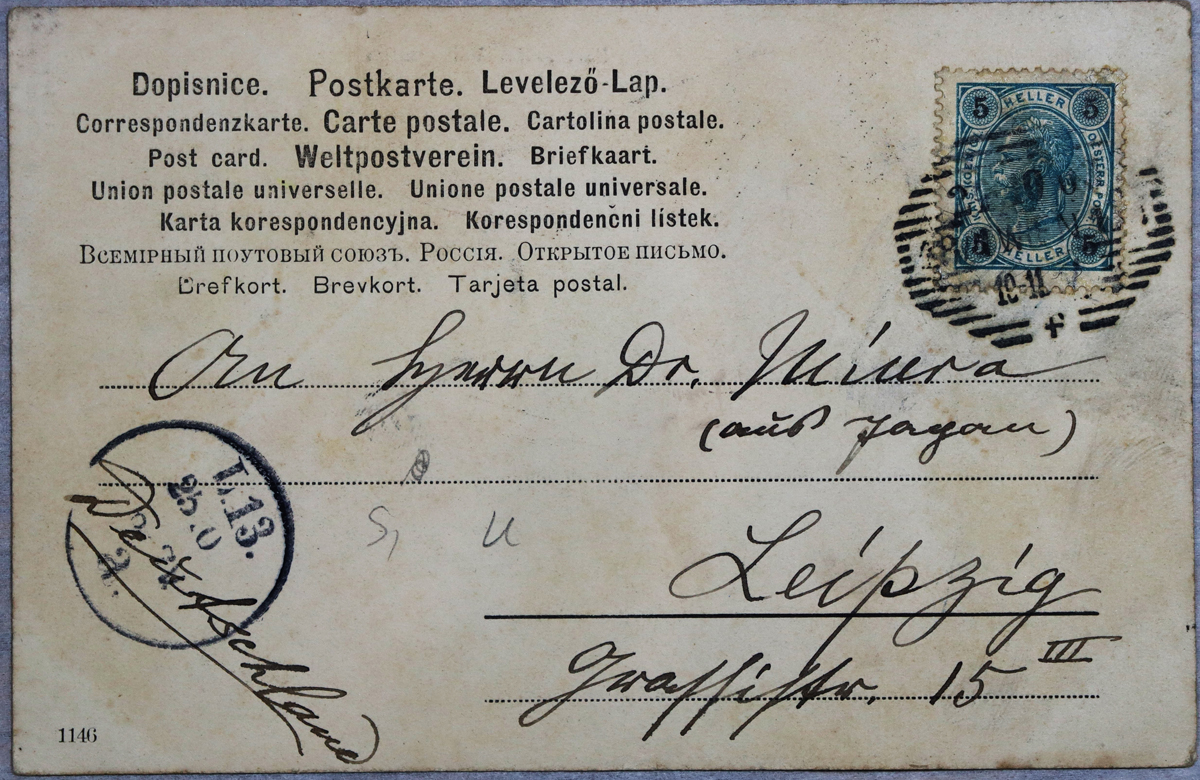 Dopisnice. Postkarte. Levelező-Lap.
Correspondenzkarte. Carte postale. Cartolina postale.
Post card. Weltpostverein. Briefkaart.
Union postale universelle. Unione postale universale.
Karta korespondencyjna. Korespondenčni lístek.
Всемірный поутовый союзъ. Россія. Открытое письмо.
Brefkort. Brevkort. Tarjeta postal.
5 HELLER 5
5 HELLER 5
10-11
An Herrn Dr. Miura
(aus Japan)
L.13.
25.
Deutschland
S, U
Leipzig
Grassistr. 15 III
1146